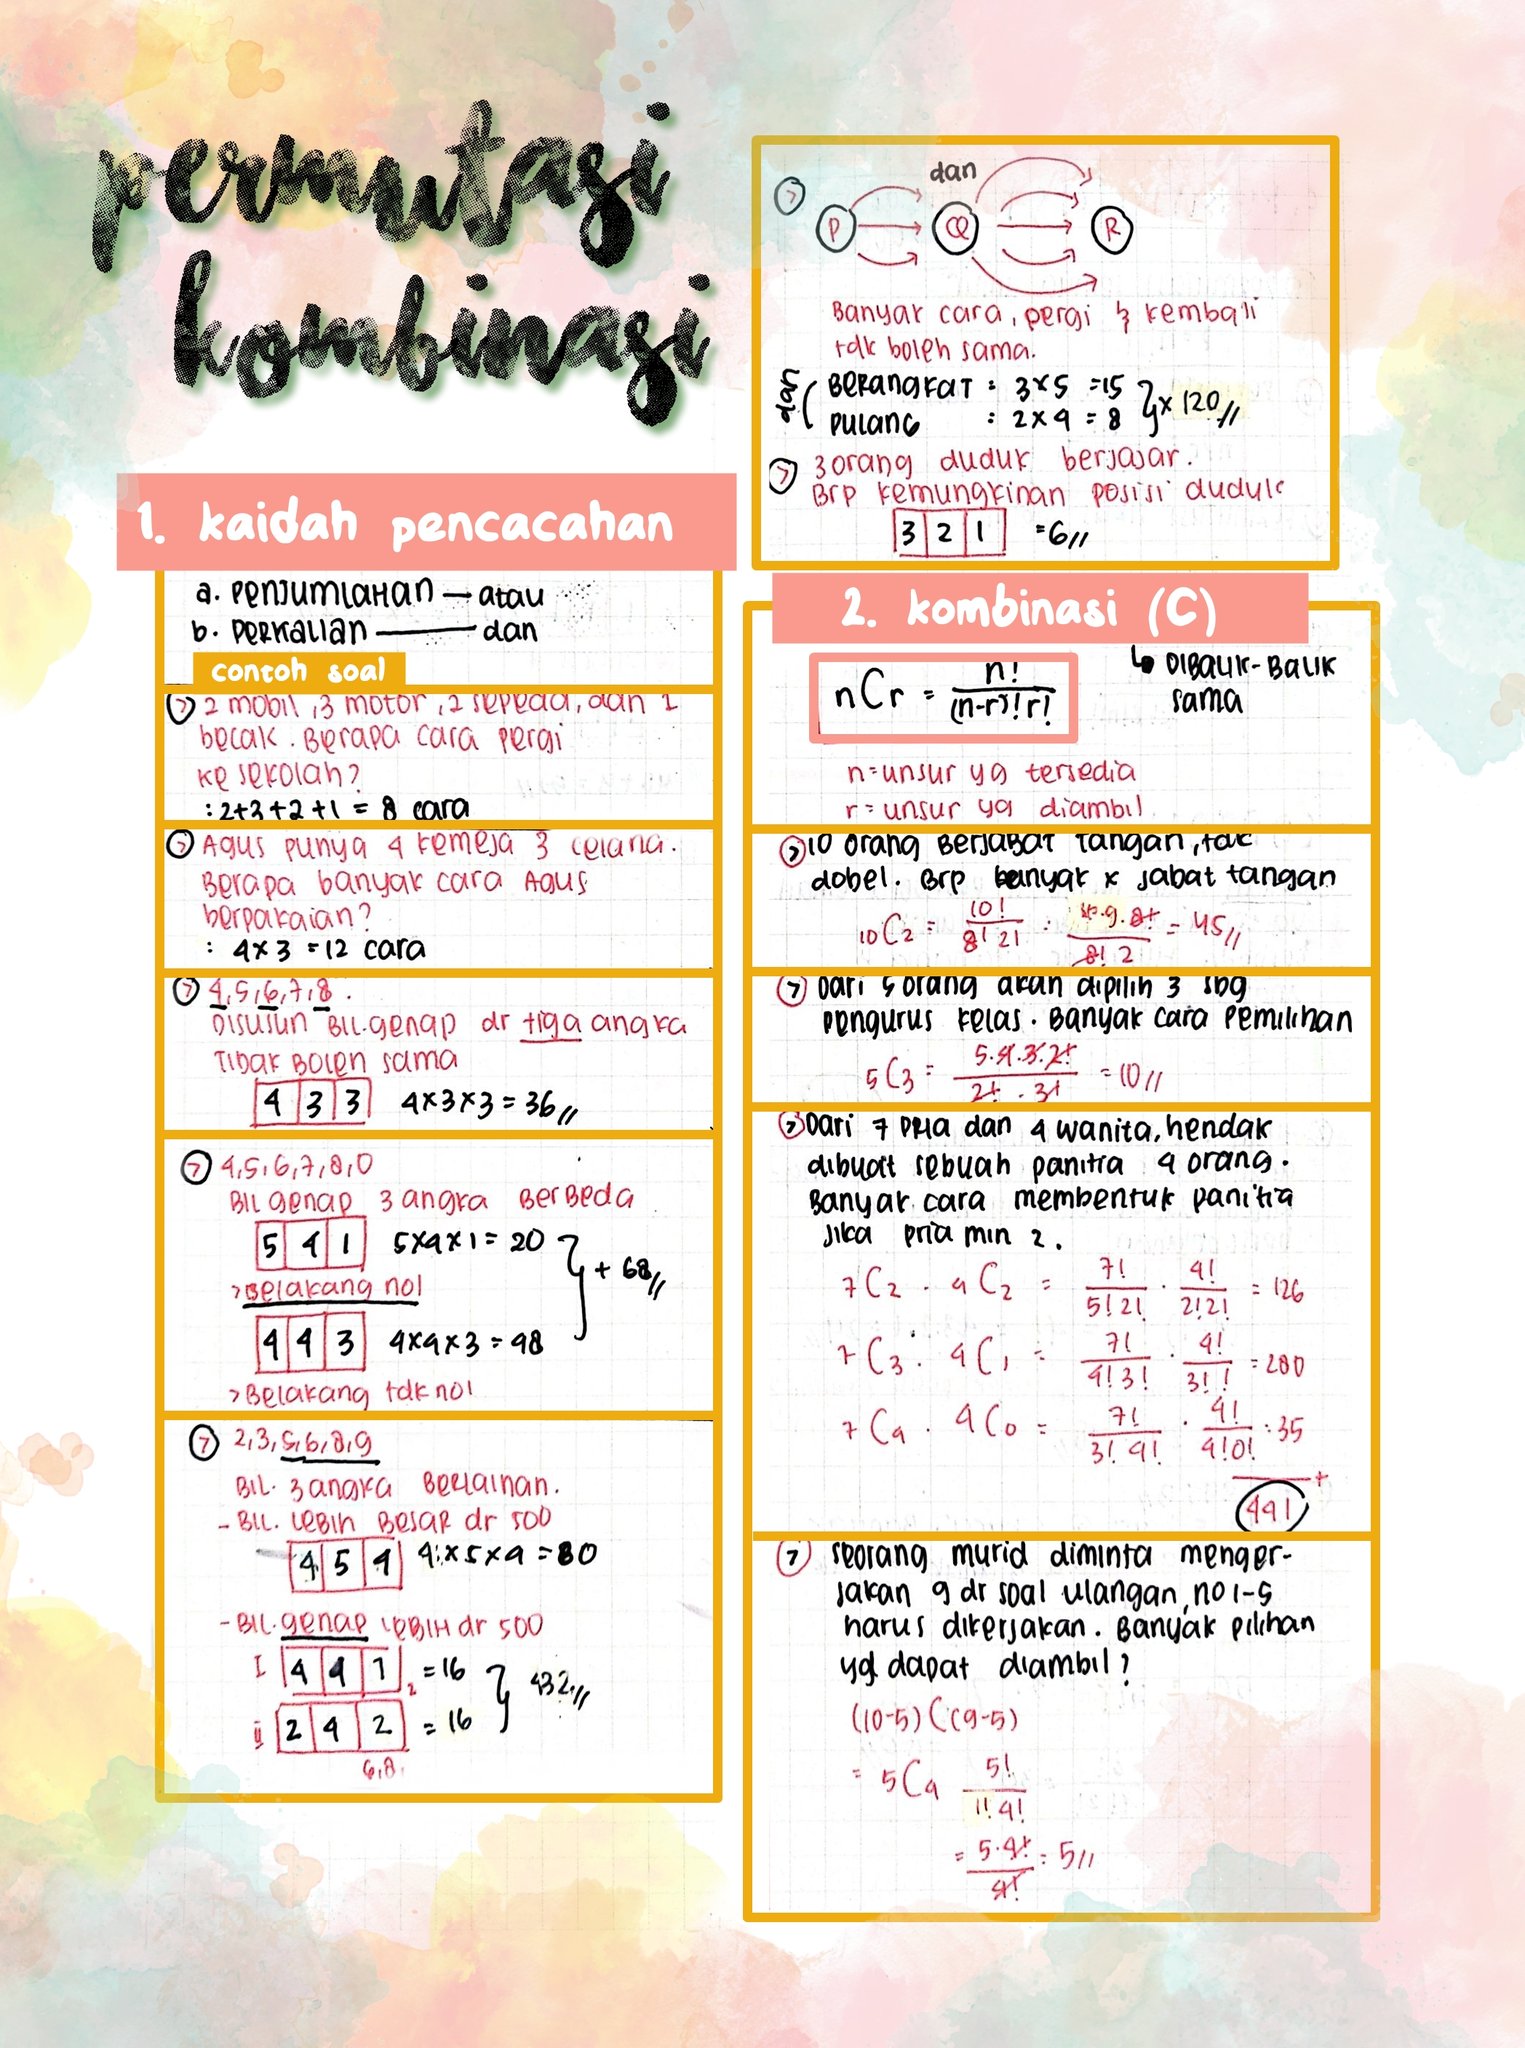 permutasi
kombinasi
1. kaidah pencacahan
a. PENJUMLAHAN → atau
b. PERKALIAN — dan
contoh soal
> 2 mobil, 3 motor, 2 sepeda, dan 1
becak. Berapa cara pergi
ke sekolah?
: 2+3+2+1 = 8 cara
> Agus punya 4 kemeja 3 celana.
Berapa banyak cara Agus
berpakaian?
: 4×3 = 12 cara
> 4,5,6,7,8.
Disusun Bil. genap dr tiga angka
Tidak Boleh sama
4 3 3 4×3×3 = 36//
> 4,5,6,7,8,0
Bil genap 3 angka Berbeda
5 4 1 5×4×1 = 20
> Belakang nol
+ 68//
4 4 3 4×4×3 = 48
> Belakang tdk nol
> 2,3,5,6,8,9
Bil. 3 angka Berlainan.
- Bil. Lebih Besar dr 500
4 5 4 4×5×4 = 80
- Bil. genap LEBIH dr 500
I 4 4 1 2 = 16
432//
II 2 4 2 = 16
6,8,
dan
> P Q R
Banyak cara, pergi & kembali
tdk boleh sama.
dan ( BERANGKAT : 3×5 = 15
PULANG : 2×4 = 8 } × 120//
> 3 orang duduk berjajar.
Brp kemungkinan posisi duduk
3 2 1 = 6//
2. kombinasi (C)
nCr = n! / (n-r)! r!
↳ DIBALIK-BALIK
sama
n = unsur yg tersedia
r = unsur yg diambil
> 10 orang Berjabat tangan, tdk
dobel. Brp banyak x jabat tangan
10C2 = 10! / 8! 2! : 10.9.8! / 8! 2 = 45//
> Dari 5 orang akan dipilih 3 sbg
pengurus kelas. Banyak cara pemilihan
5C3 = 5.4.3.2! / 2! . 3! = 10//
> Dari 7 pria dan 4 wanita, hendak
dibuat sebuah panitia 4 orang.
Banyak cara membentuk panitia
jika pria min 2.
7C2 . 4C2 = 7! / 5! 2! . 4! / 2! 2! = 126
7C3 . 4C1 = 7! / 4! 3! . 4! / 3! ! = 280
7C4 . 4C0 = 7! / 3! 4! . 4! / 4! 0! : 35
+
441
> Seorang murid diminta menger-
jakan 9 dr soal ulangan, no 1-5
harus dikerjakan. Banyak pilihan
yg dapat diambil?
(10-5) C (9-5)
= 5C4 5! / 1! 4!
= 5.4! / 4! = 5//